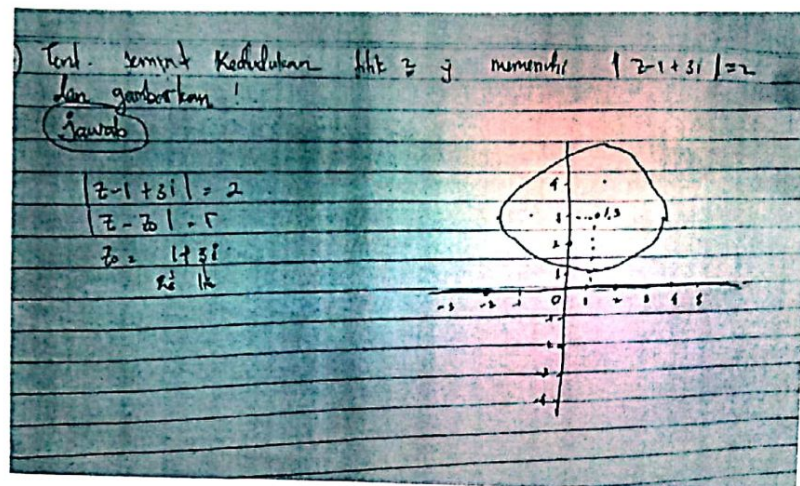 Tent. tempat Kedudukan titik z yg memenuhi | z-1+3i | = 2
dan gambarkan !
Jawab
|z-1 + 3i| = 2
|z - z0| = r
z0 = 1+3i
4
3 1,3
2
1
-3 -2 -1 0 1 2 3 4 5
-1
-2
-3
-4